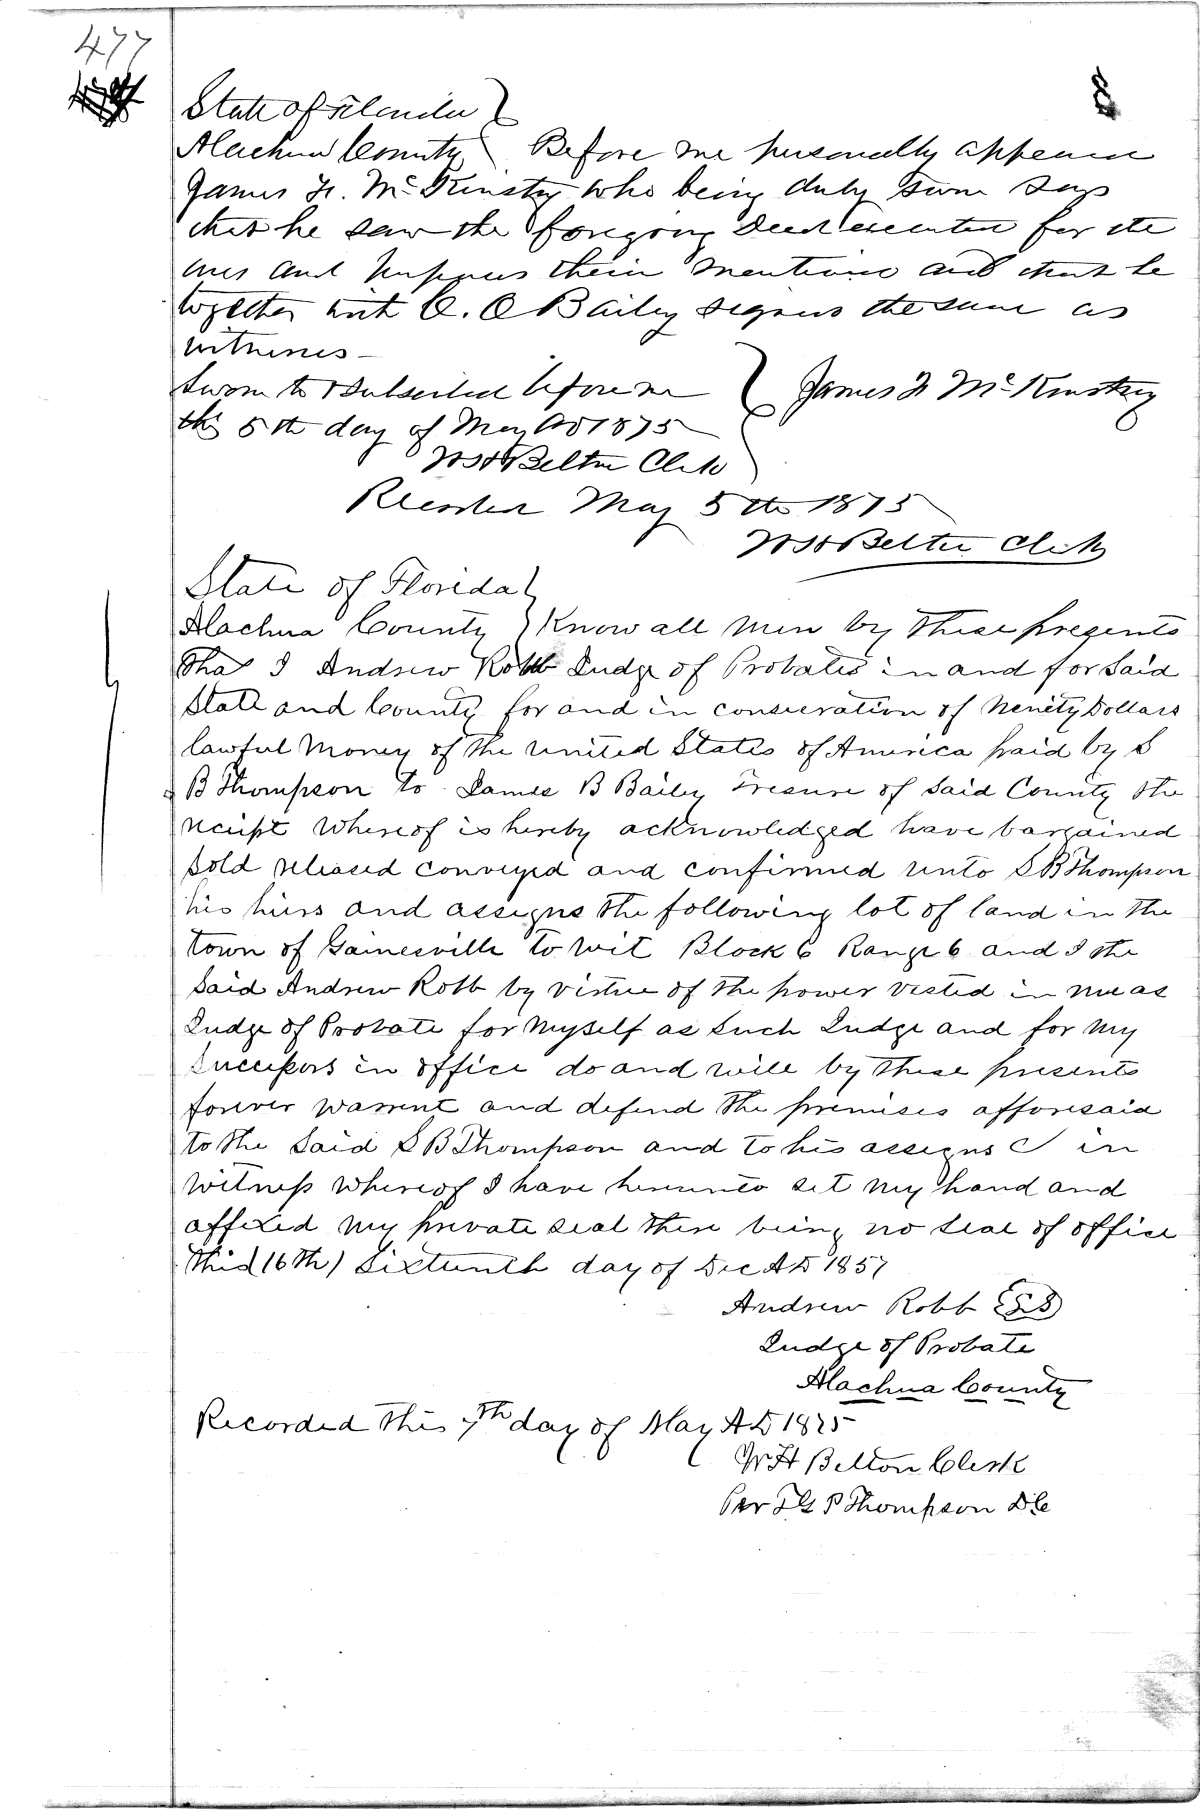 477
State of Florida
Alachua County Before me personally appeared
James F. McKinstry who being duly sworn says
that he saw the foregoing Deed executed for the
uses and purposes therein mentioned and that he
together with C. O Bailey signed the same as
witnesses
Sworn to & subscribed before me James F McKinstry
this 5th day of May AD 1875
WH Belton Clerk
Recorded May 5th 1875
WH Belton Clerk
State of Florida
Alachua County Know all men by these presents
That I Andrew Robb Judge of Probate in and for Said
State and County for and in consieration of Ninety Dollars
lawful Money of the United States of America paid by S
B Thompson to James B Bailey Tresure of Said County the
receipt whereof is hereby acknowledged have bargained
sold released conveyed and confirmed unto S B Thompson
his heirs and assigns the following lot of land in the
town of Gainesville to wit Block 6 Range 6 and I the
Said Andrew Robb by virtue of the power vested in me as
Judge of Probate for Myself as Such Judge and for my
Successors in office do and will by these presents
forever warrent and defend the premises afforesaid
to the Said S B Thompson and to his assigns in
Witness whereof I have hereunto set my hand and
affixed my private seal there being no seal of office
this (16th) Sixteenth day of Dec AD 1857
Andrew Robb
Judge of Probate
Alachua County
Recorded this 7th day of May AD 1875
WH Belton Clerk
Per T G P Thompson DC